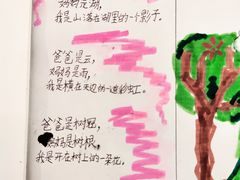 妈妈是湖,
我是山落在湖里的一个影子。
爸爸是云,
妈妈是雨,
我是横在天边的一道彩虹。
爸爸是树冠,
妈妈是树根,
我是开在树上的一朵花。